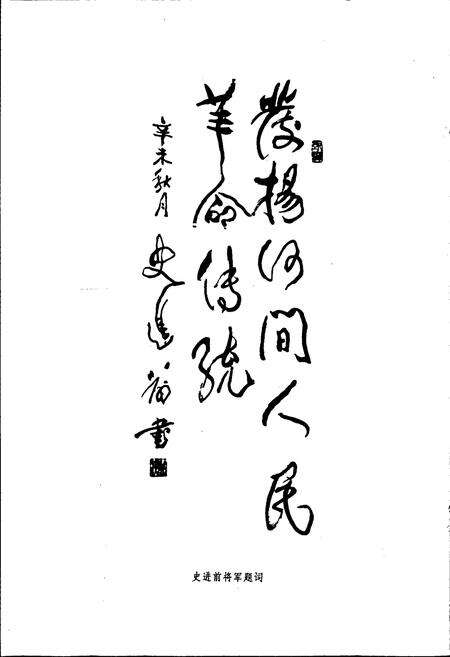 發揚河間人民
革命傳統
辛未秋月
史進前書
史进前将军题词